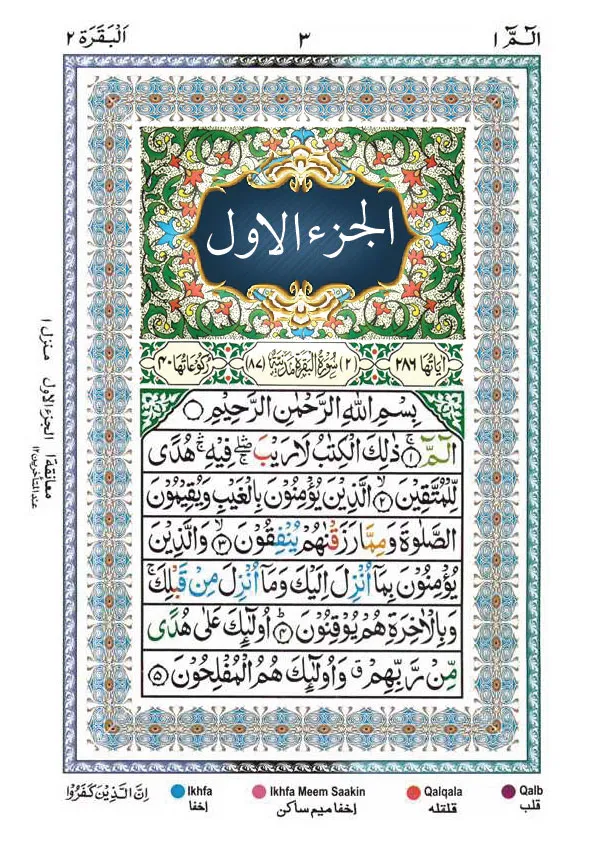 الٓـمّٓ ١
٣
اَلْبَقَرَة ٢
الجزء الاول
اٰيَاتُهَا ٢٨٦
(٢) سُوْرَةُ الْبَقَرَةِ مَدَنِيَّةٌ (٨٧)
رُكُوْعَاتُهَا ٤٠
بِسْمِ اللّٰهِ الرَّحْمٰنِ الرَّحِيْمِ
الٓـمّٓ ۚ‏ ١ ذٰلِكَ الْكِتٰبُ لَا رَيْبَ ۛۖ ۚ فِيْهِ ۛۚ هُدًى
لِّلْمُتَّقِيْنَ ۙ‏ ٢ الَّذِيْنَ يُؤْمِنُوْنَ بِالْغَيْبِ وَيُقِيْمُوْنَ
الصَّلٰوةَ وَمِمَّا رَزَقْنٰهُمْ يُنْفِقُوْنَ ۙ‏ ٣ وَالَّذِيْنَ
يُؤْمِنُوْنَ بِمَاۤ اُنْزِلَ اِلَيْكَ وَمَاۤ اُنْزِلَ مِنْ قَبْلِكَ ۚ
وَبِالْاٰخِرَةِ هُمْ يُوْقِنُوْنَ ؕ‏ ٤ اُولٰٓئِكَ عَلٰى هُدًى
مِّنْ رَّبِّهِمْ ۗ وَاُولٰٓئِكَ هُمُ الْمُفْلِحُوْنَ ٥
معانقة ١ الجزء الاول منزل ١
عند المتأخرين ١٢
اِنَّ الَّذِيْنَ كَفَرُوْا
Ikhfa
اخفا
Ikhfa Meem Saakin
اخفا میم ساکن
Qalqala
قلقله
Qalb
قلب